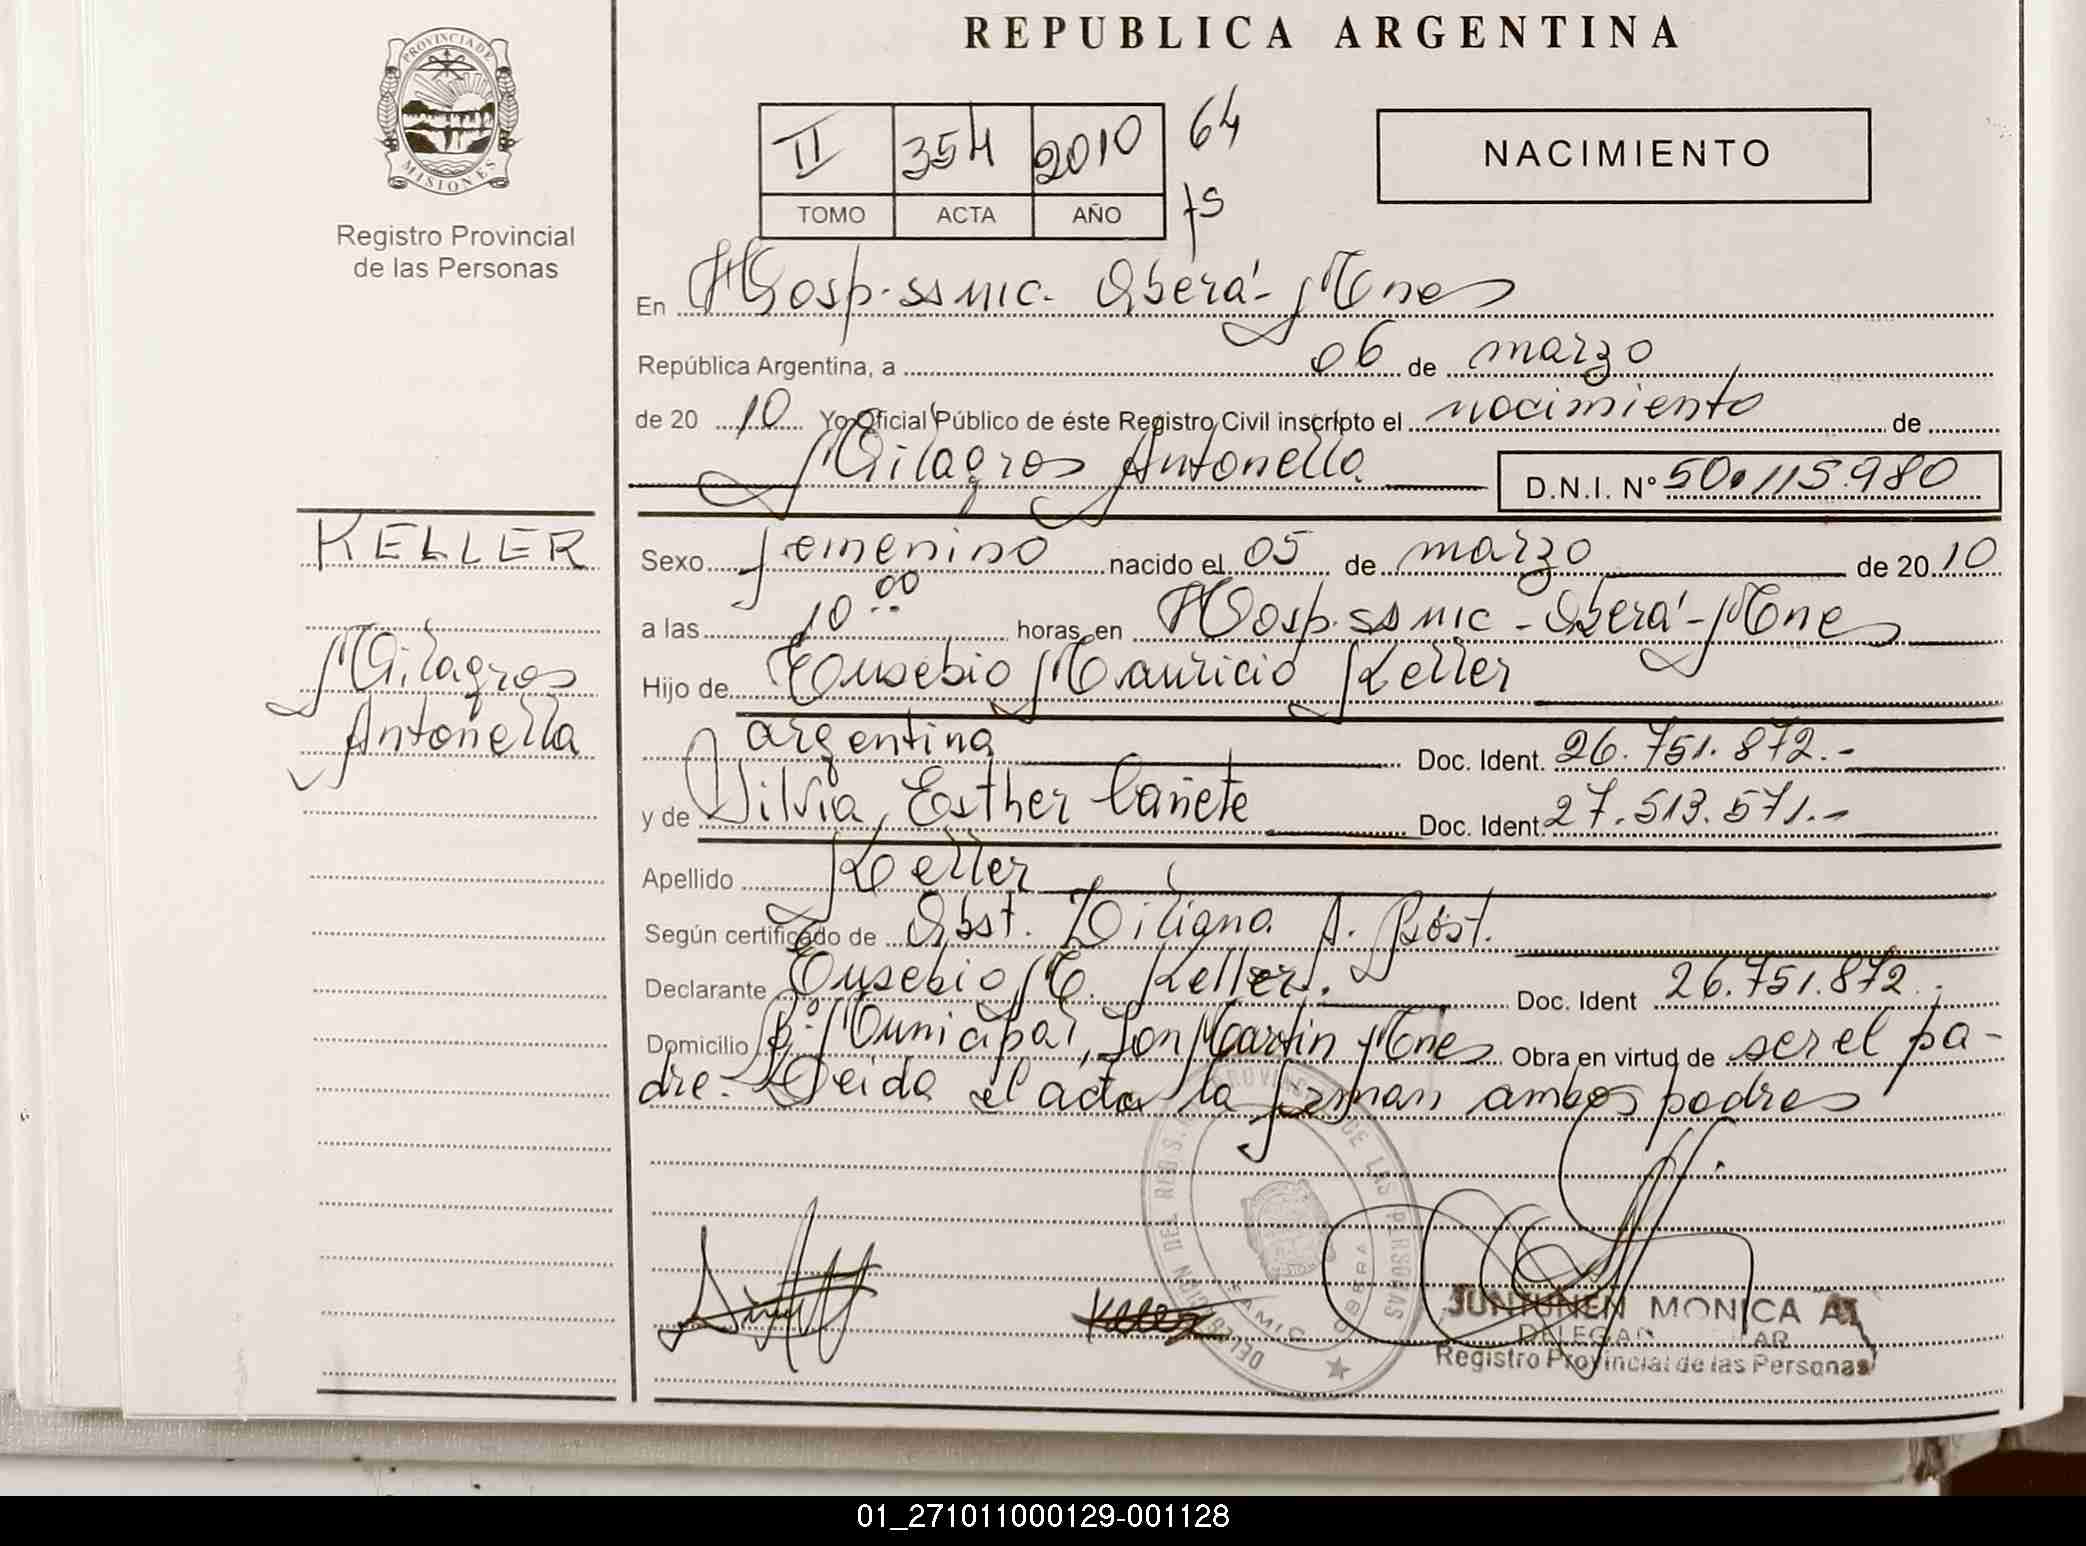 REPUBLICA ARGENTINA
PROVINCIA DE
MISIONES
Registro Provincial
de las Personas
II 354 2010 64
TOMO ACTA AÑO fs
NACIMIENTO
En Hosp. ssmic. Oberá - Mnes
República Argentina, a 06 de marzo
de 20 10 Yo Oficial Público de éste Registro Civil inscripto el nacimiento de
Milagros Antonella D.N.I. Nº 50.115.980
KELLER
Milagros
Antonella
Sexo femenino nacido el 05 de marzo de 20 10
a las 10:00 horas en Hosp. ssmic - Oberá - Mnes
Hijo de Eusebio Mauricio Keller
argentina Doc. Ident. 26.751.872.-
y de Silvia Esther Cañete Doc. Ident. 27.513.571.-
Apellido Keller
Según certificado de Obst. Liliana A. Bost.
Declarante Eusebio M. Keller. Doc. Ident 26.751.872.-
Domicilio Bº Municipal, San Martin Mnes Obra en virtud de ser el pa-
dre. Leida el acta la firman ambos padres
DELEGACION DEL REG. PROVINCIAL DE LAS PERSONAS
SAMIC OBERA
JUNTUNEN MONICA
Registro Provincial de las Personas
01_271011000129-001128